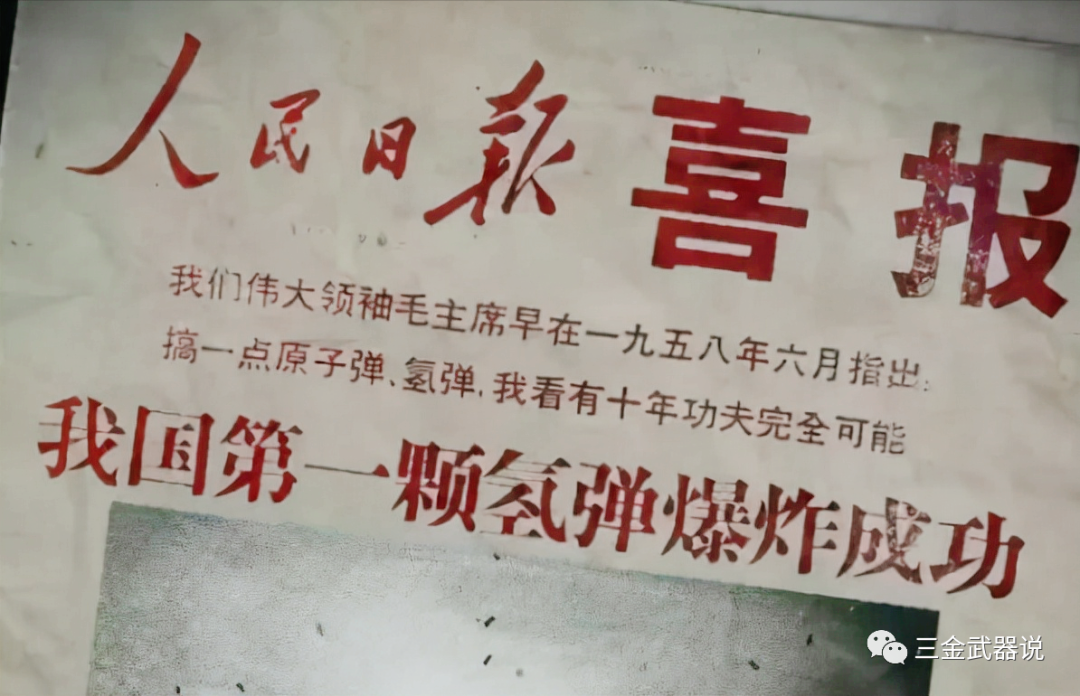 人民日报 喜报
我们伟大领袖毛主席早在一九五八年六月指出:
搞一点原子弹、氢弹,我看有十年功夫完全可能
我国第一颗氢弹爆炸成功
三金武器说